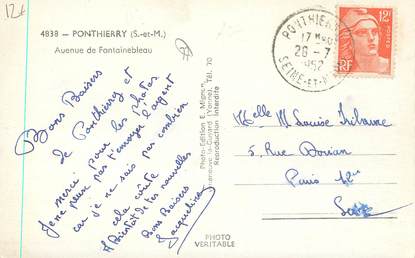 12€
4838 - PONTHIERRY (S.-et-M.)
Avenue de Fontainebleau
Bons Baisers
de Ponthierry et
merci pour les photos
je ne peux pas t'envoyer l'argent
car je ne sais pas combien
cela coûte
A Bientôt de tes nouvelles
Bons Baisers
Jacqueline
Photo-Edition E. Mignon
(Yonne). Tél. 70
Reproduction Interdite
PHOTO
VERITABLE
PONTHIERRY
17 H
28 - 7
1952
SEINE-ET-M
12F
POSTES
RF
Melle M Louise
5, Rue Dorian
Paris 12e
Seine